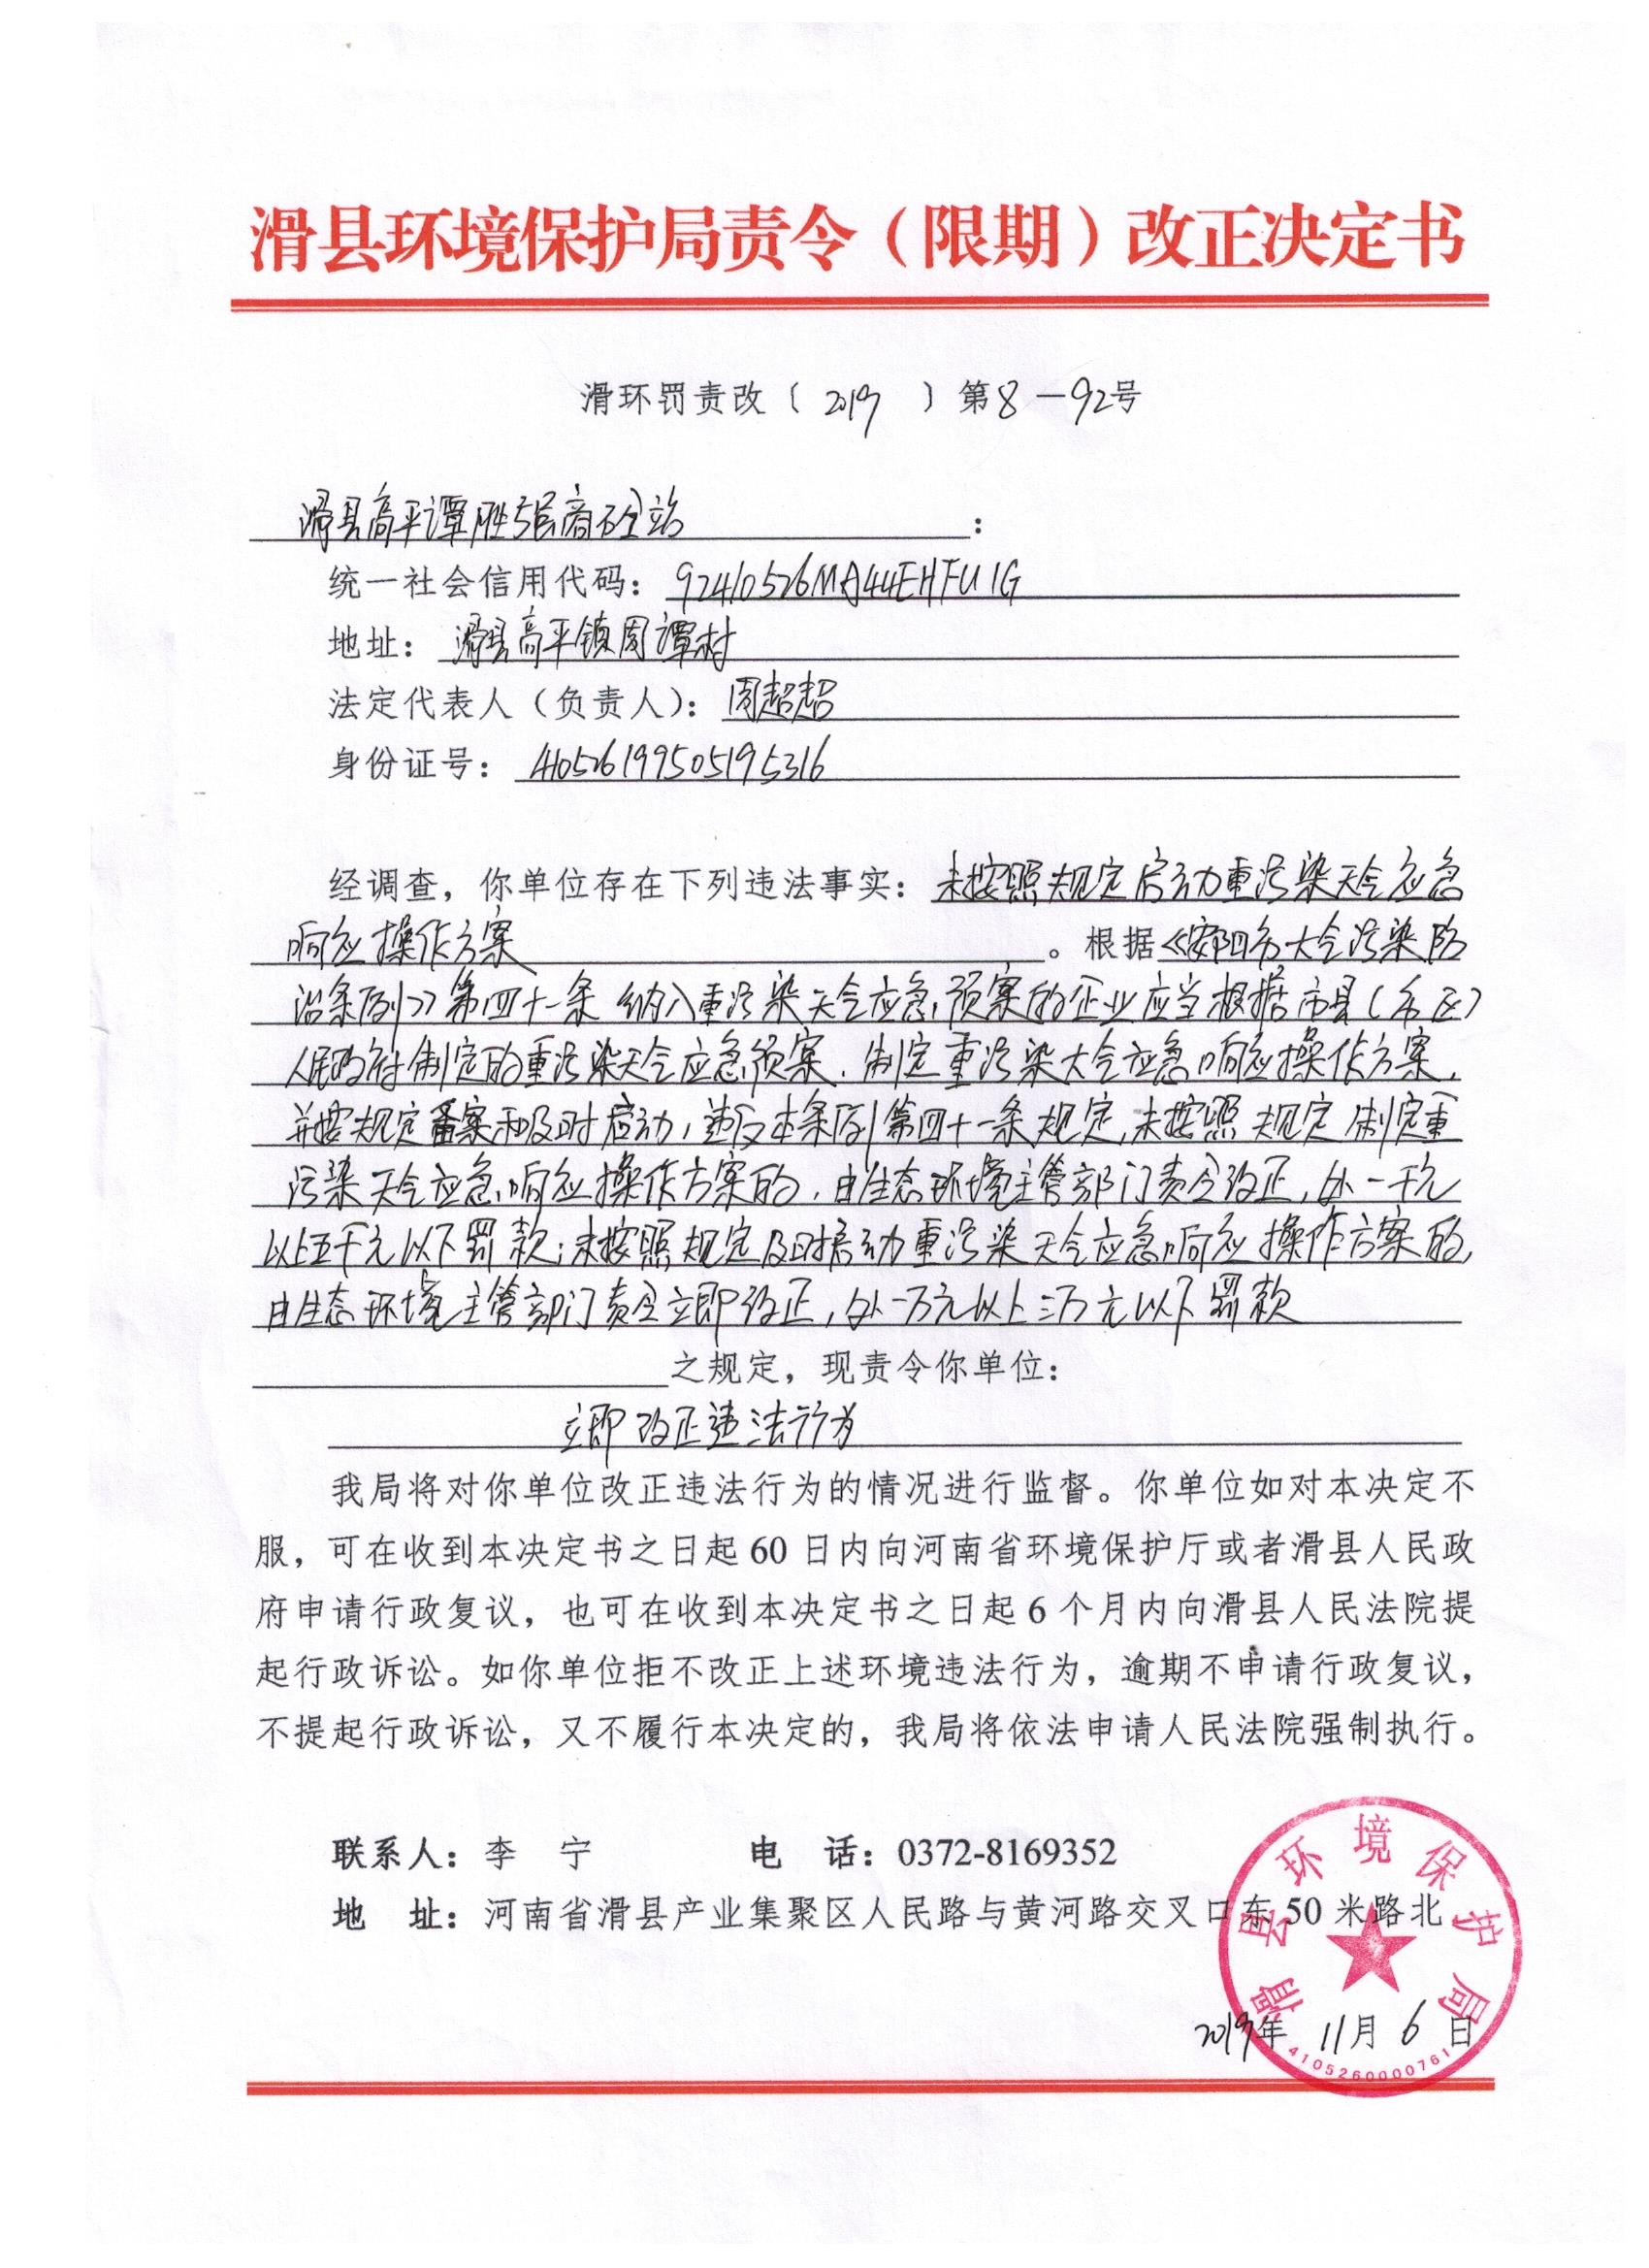 滑县环境保护局责令（限期）改正决定书
滑环罚责改〔2019〕第8-92号
滑县高平谭胜强商砼站：
统一社会信用代码：92410526MA44EHFU1G
地址：滑县高平镇周谭村
法定代表人（负责人）：周超超
身份证号：410526199505195316
经调查，你单位存在下列违法事实：未按照规定启动重污染天气应急
响应操作方案。根据《安阳市大气污染防
治条例》第四十一条 纳入重污染天气应急预案的企业应当根据市县（市区）
人民政府制定的重污染天气应急预案，制定重污染天气应急响应操作方案，
并按规定备案和及时启动，违反本条例第四十一条规定，未按照规定制定重
污染天气应急响应操作方案的，由生态环境主管部门责令改正，处一千元
以上五千元以下罚款；未按照规定及时启动重污染天气应急响应操作方案的，
由生态环境主管部门责令立即改正，处一万元以上三万元以下罚款
之规定，现责令你单位：
立即改正违法行为
我局将对你单位改正违法行为的情况进行监督。你单位如对本决定不
服，可在收到本决定书之日起60日内向河南省环境保护厅或者滑县人民政
府申请行政复议，也可在收到本决定书之日起6个月内向滑县人民法院提
起行政诉讼。如你单位拒不改正上述环境违法行为，逾期不申请行政复议，
不提起行政诉讼，又不履行本决定的，我局将依法申请人民法院强制执行。
联系人：李 宁 电 话：0372-8169352
地 址：河南省滑县产业集聚区人民路与黄河路交叉口东50米路北
滑县环境保护局
2019年 11月 6日
4105260000761